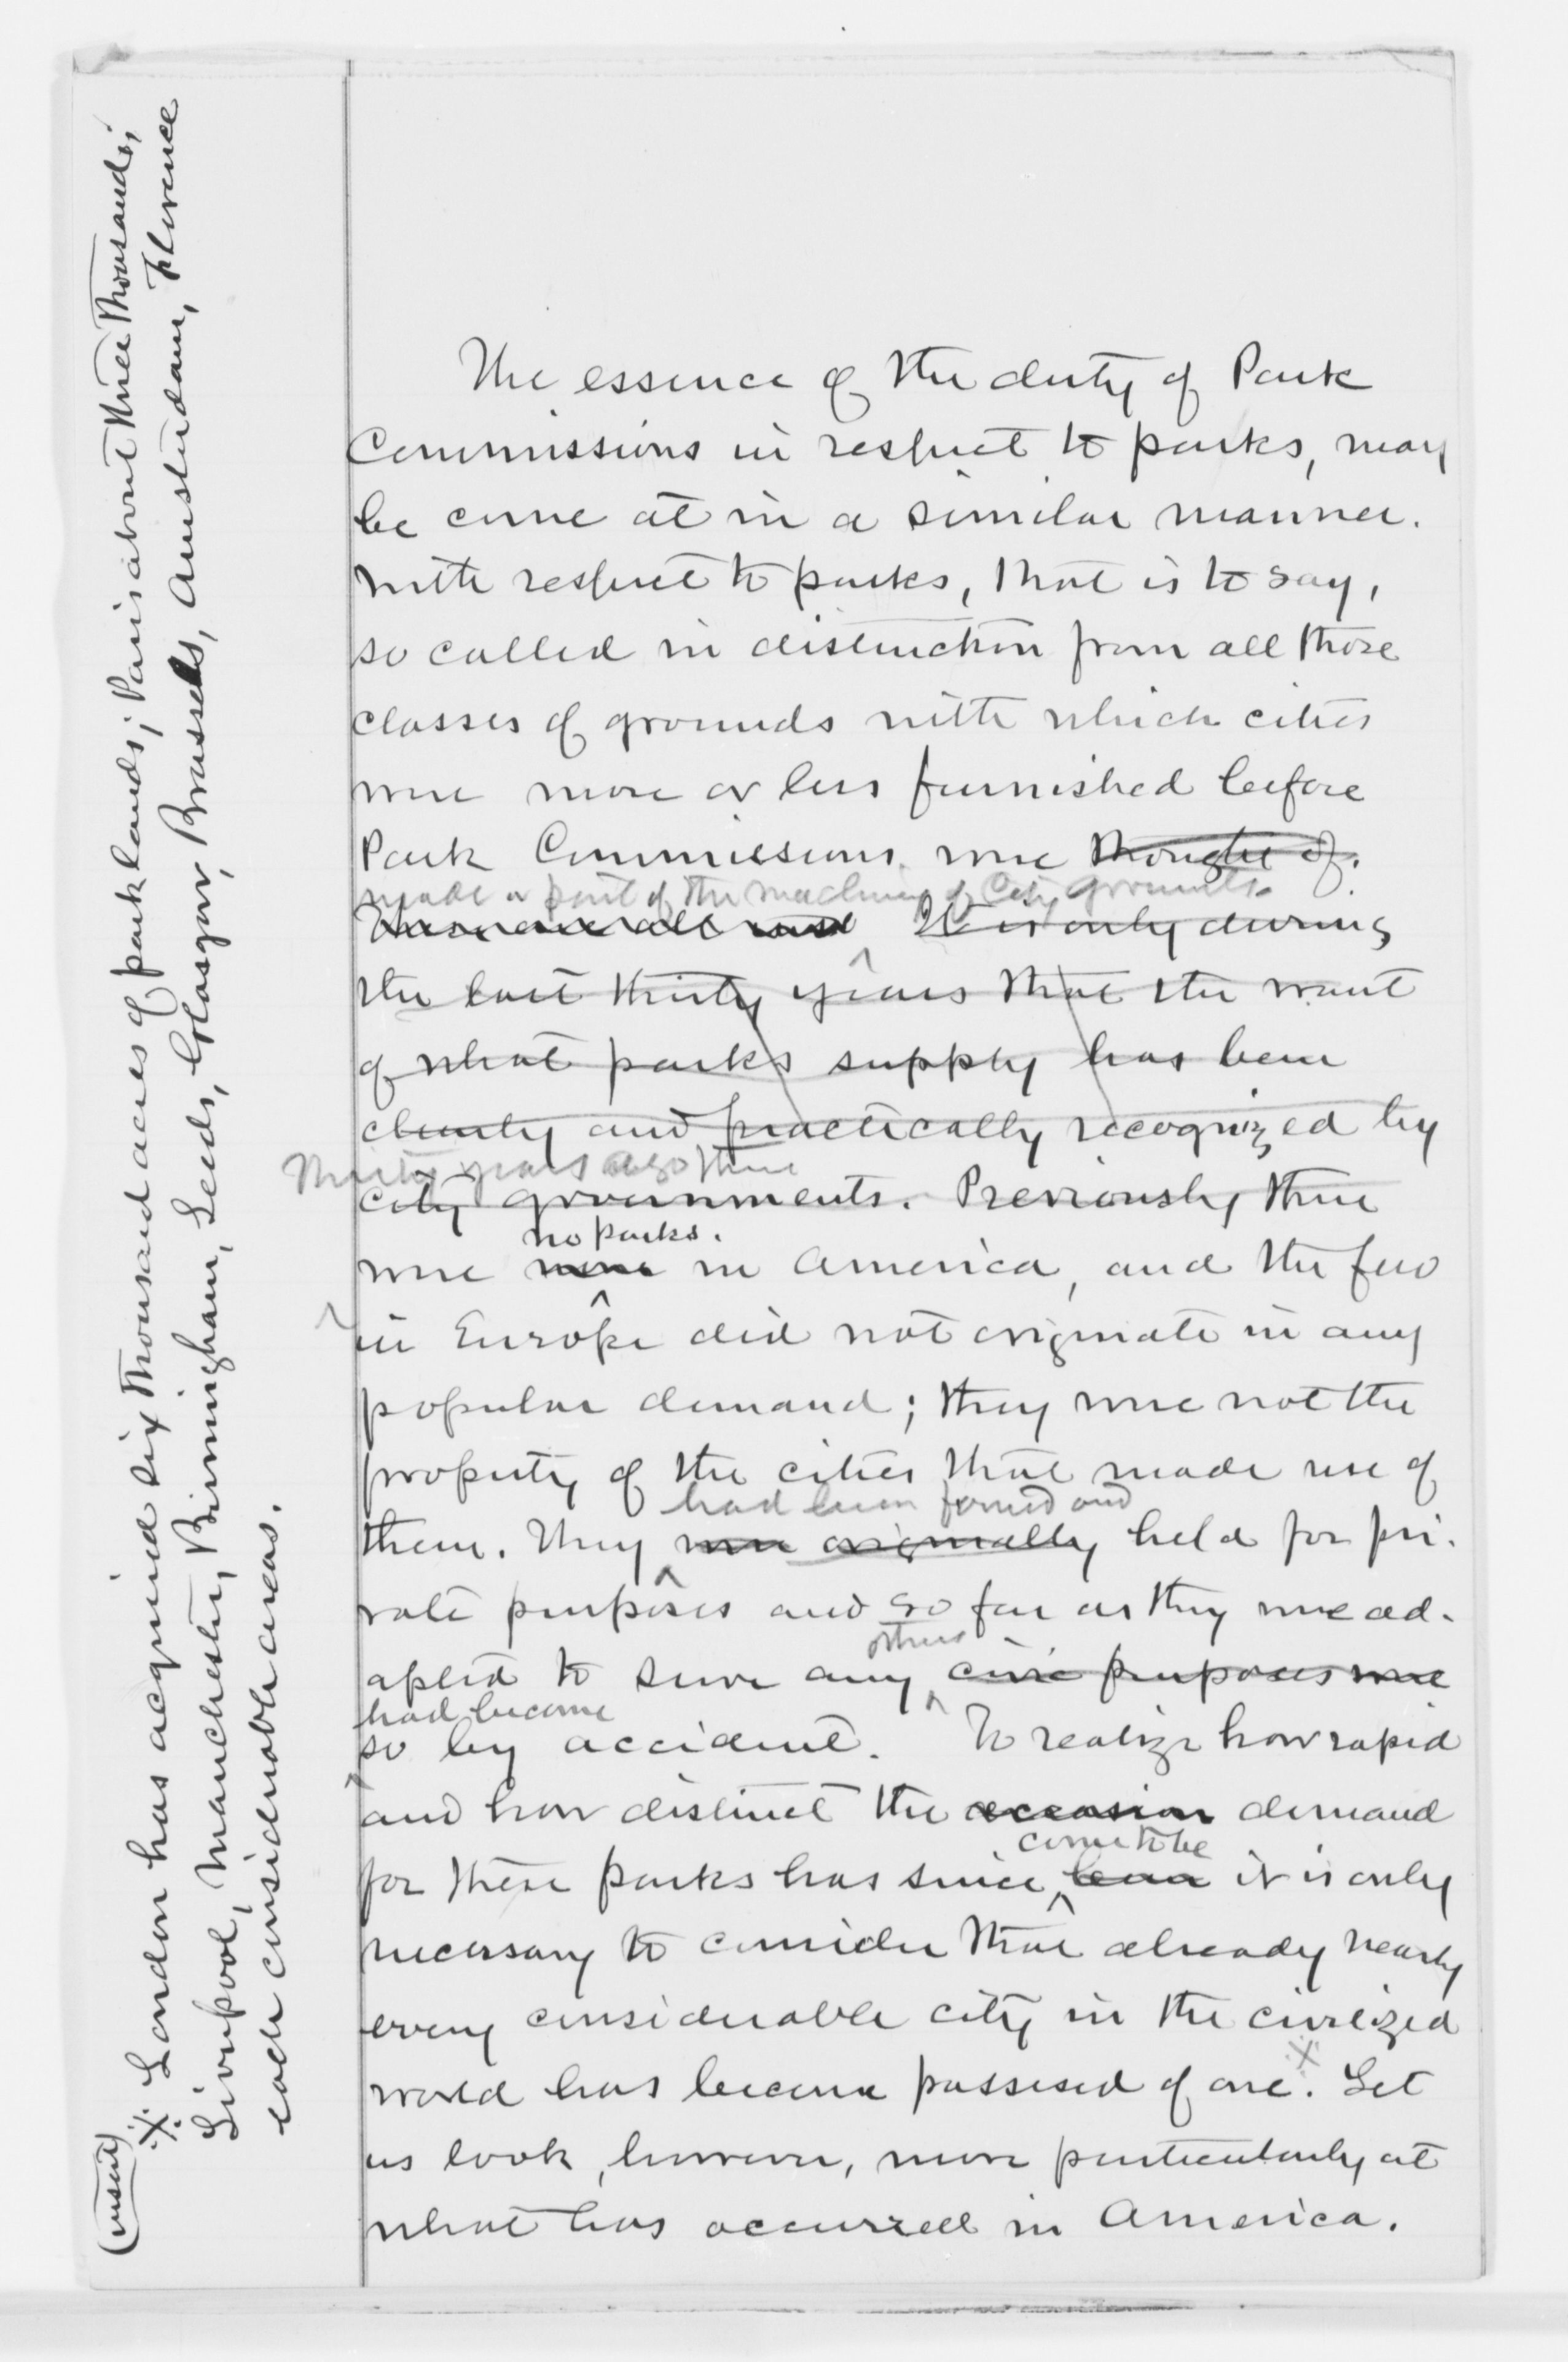 The essence of the duty of Park
Commissions in respect to parks, may
be come at in a similar manner.
With respect to parks, that is to say,
so called in distinction from all those
classes of grounds with which cities
were more or less furnished before
Park Commissions were thought of.
made a part of the machinery of City
It is only during
the last thirty years that the want
of what parks supply has been
clearly and practically recognized by
Thirty years ago there
city governments. Previously there
no parks.
were none in America, and the few
in Europe did not originate in any
popular demand; they were not the
property of the cities that made use of
had been formed and
them. They were originally held for pri-
vate purposes and so far as they were ad-
others
apted to serve any civic purposes were
had become
so by accident. To realize how rapid
and how distinct the occasion demand
come to be
for these parks has since been it is only
necessary to consider that already nearly
every considerable city in the civilized
world has become possessed of one. Let
us look, however, more particularly at
what has occurred in America.
(insert)
London has acquired six thousand acres of park lands; Paris about three thousand;
Liverpool, Manchester, Birmingham, Leeds, Glasgow, Brussels, Amsterdam, Florence
each considerable areas.